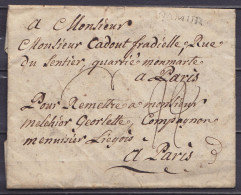 A Monsieur
Monsieur Cadout fradielle Rue
Du Sentier, quartié monmarte
a Paris
Pour Remettre a monsieur
melchior Georlette Compagnon
menuisier Liegois
a Paris